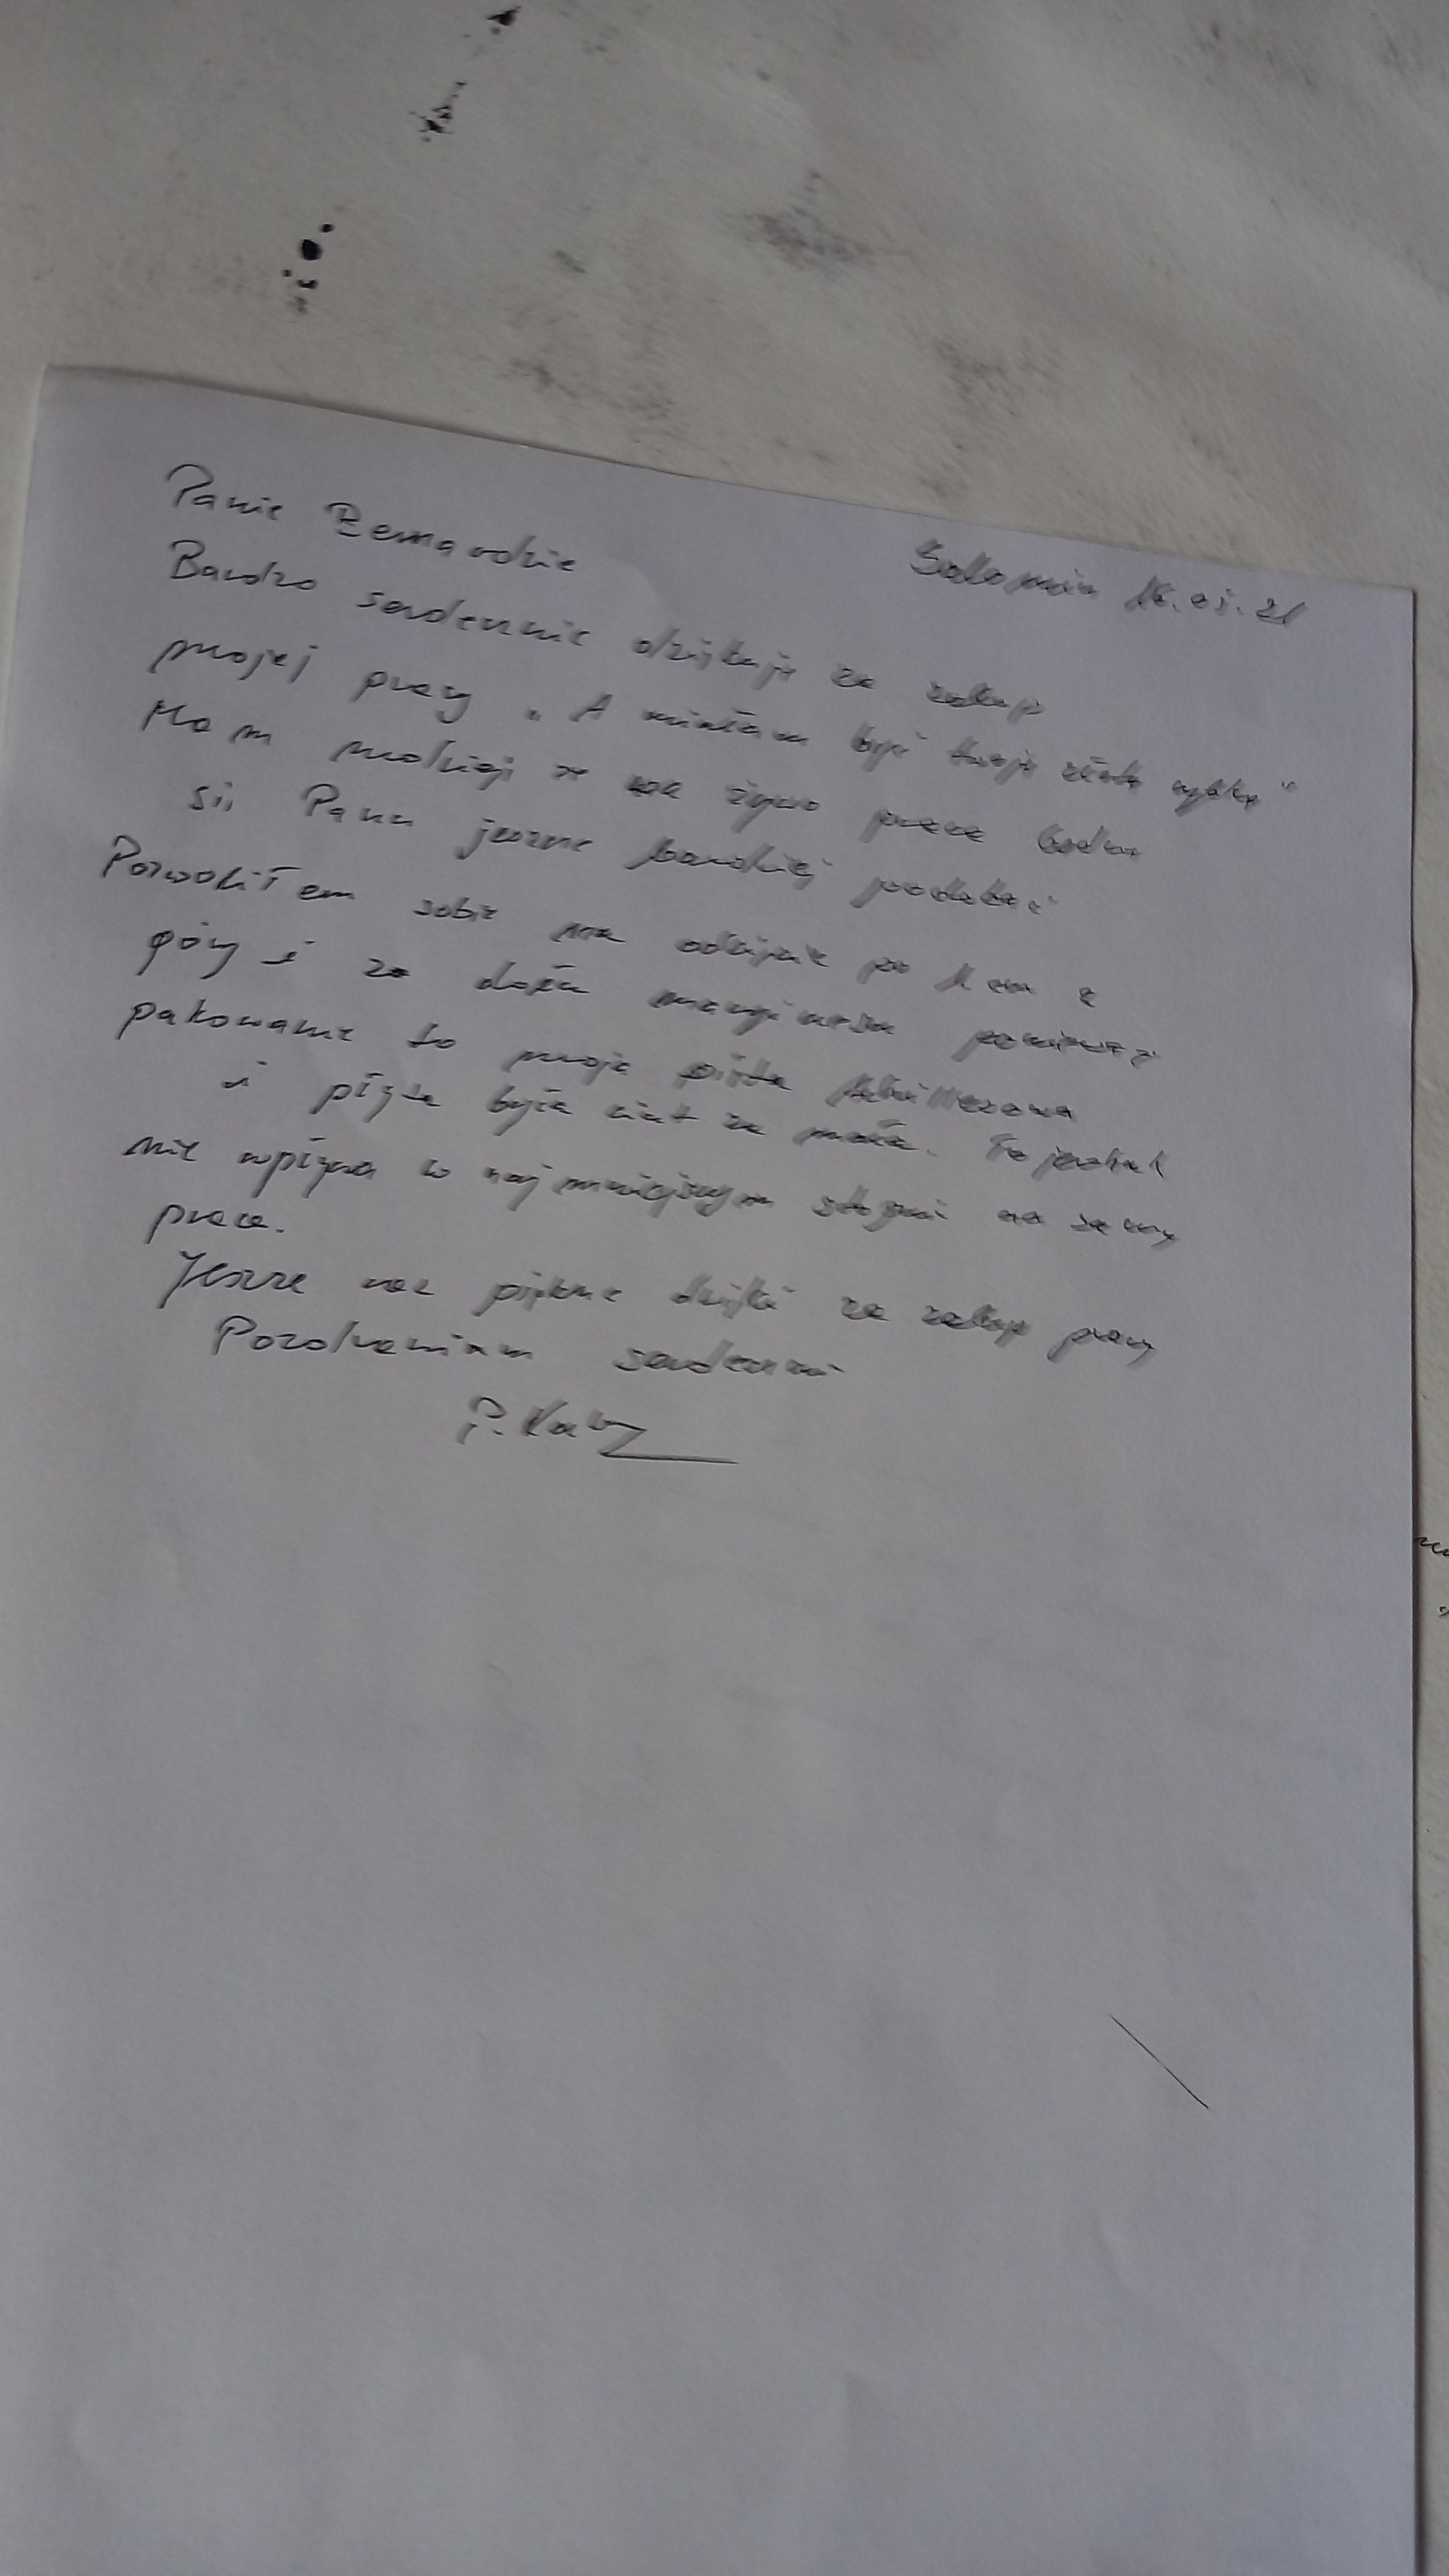 Panie Bernardzie
16.05.21
Bardzo serdecznie dziękuję za zakup
mojej pracy „A miałam być twoją złotą rybką"
Mam nadzieję że na żywo praca będzie
się Panu jeszcze bardziej podobać
Pozwoliłem sobie na odcięcie po 1 cm z
góry i z dołu marginesu ponieważ
pakowanie to moja pięta Achillesowa
i płyta była ciut za mała. To jednak
nie wpływa w najmniejszym stopniu na samą
pracę.
Jeszcze raz piękne dzięki za zakup pracy
Pozdrawiam serdecznie